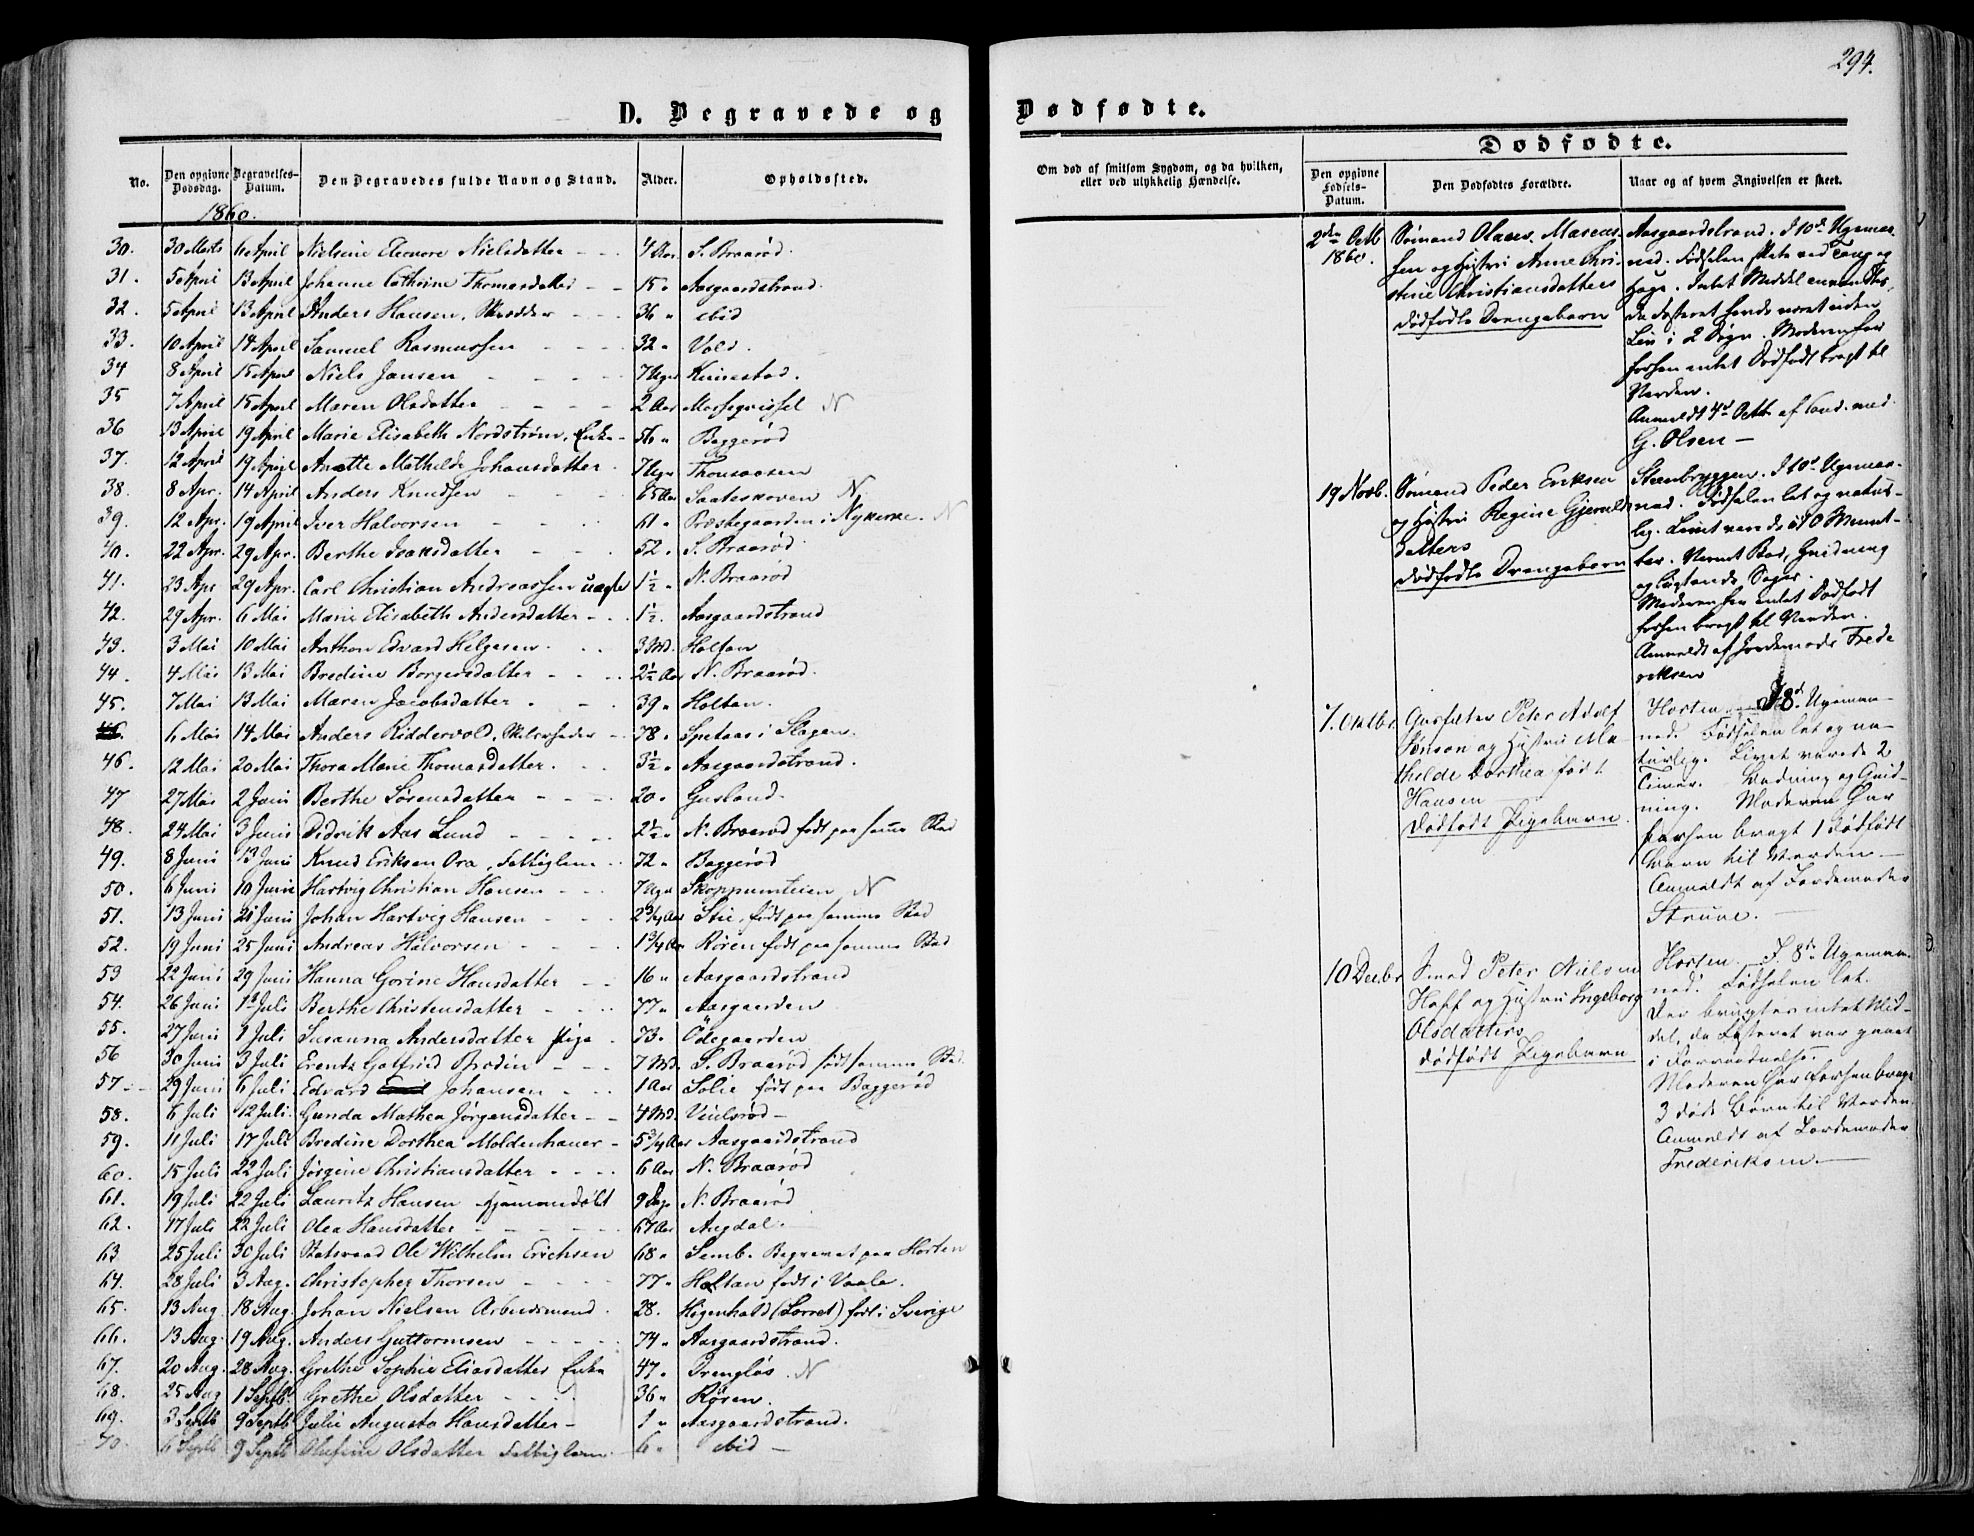 294.
D. Begravede og Dødfødte.
No. Den opgivne Dødsdag. Begravelses-Datum. Den Begravedes fulde Navn og Stand. Alder. Opholdssted.
1860.
30. 30 Marts 6 April Nielsine Eleonore Nielsdatter 4 Aar S. Braarød.
31. 5 April 13 April Johanne Cathrine Thomasdatter 15 " Aasgaardstrand.
32. 5 April 13 April Anders Hansen, Skrædder 36 " ibid
33. 10 April 14 April Samuel Rasmussen 32 " Vold.
34 8 April 15 April Niels Jansen 7 Uger Knivestad.
35 7 April 15 April Maren Olsdatter 2 Aar N
36 13 April 19 April Marie Elisabeth Nordstrøm, Enke 56 " Baggerød
37. 12 April 19 April Anette Mathilde Johansdatter 7 Uger
38. 8 Apr. 14 April Anders Knudsen 65 Aar Saateskoven N
39. 12 Apr. 19 April Iver Halvorsen 61 " Præstegaarden i Nykirke. N
40. 22 Apr. 29 Apr. Berthe Isaksdatter 52. S. Braarød.
41. 23 Apr 29 Apr. Carl Christian Andreassen uægte 1½ " N. Braarød
42. 29 Apr. 6 Mai Marie Elisabeth Andersdatter 1½. Aasgaardstrand
43. 3 Mai 10 Mai Anthon Edvard Helgesen 3 Md. Holtan
44. 4 Mai 13 Mai Bredine Borgersdatter 2½ Aar N. Braarød.
45. 7 Mai 13 Mai Maren Jacobsdatter 39 " Holtan.
6 Mai 14 Mai Anders Riddervold, 78 " i Slagen.
46. 12 Mai 20 Mai Thora Marie Thomasdatter. 3½ " Aasgaardstrand.
47 27 Mai 2 Juni Berthe Sørensdatter 20 " Gusland
48. 24 Mai 3 Juni Didrik Aas Lund 2½ " N. Braarød født paa samme Sted
49. 8 Juni 13 Juni Knud Eriksen Ora, Fattiglem 72 " Baggerød
50. 6 Juni 10 Juni Hartvig Christian Hansen 7 Uger Skoppumteien N
51. 13 Juni 21 Juni Johan Hartvig Hansen 2¾ Aar Stie, født paa samme Sted
52. 19 Juni 25 Juni Andreas Halvorsen 1¾ Aar Røren født paa samme Sted
53 22 Juni 29 Juni Hanna Gorine Hansdatter 16 " Aasgaardstrand
54. 26 Juni 1 Juli Berthe Christensdatter 77 " Aasgaarden
55. 27 Juni 1 Juli Susanna Andersdatter Pige 73. Ödegaarden
56 30 Juni 3 Juli Erentz Gotfred Brodin 7 Md. S. Braarød født samme Sted
57 29 Juni 6 Juli Edvard Johansen 1 Aar Solie født paa Baggerød
58. 6 Juli 12 Juli. Gunda Mathea Jørgensdatter 4 Md.
59. 11 Juli 17 Juli Bredine Dorthea Moldenhauer 5¾ Aar Aasgaardstrand
60. 15 Juli 22 Juli Jørgine Christiansdatter 6 Aar N. Braarød
61. 19 Juli 22 Juli Lauritz Hansen Hjemmedøbt 9 Dage N. Braarød
62. 17 Juli 22 Juli Olea Hansdatter 67 Aar Augdal.
63 25 Juli 30 Juli Statsraad Ole Wilhelm Erichsen 68 " Semb. Begravet paa Horten
64. 28 Juli 3 Aug. Christopher Thorsen 77 " Holtan født i Vaale.
65. 13 Aug. 18 Aug. Johan Nielsen Arbeidsmand 28. (Lorret) født i Sverige
66. 13 Aug. 19 Aug. Anders Guttormsen 74 " Aasgaardstrand.
67. 20 Aug. 28 Aug. Grethe Sophie Eliasdatter Enke 47. N
68. 25 Aug 1 Septb. Grethe Olsdatter 36 " Røren.
69. 3 Septb 9 Septb Julie Augusta Hansdatter 1 " Aasgaardstrand.
70. 6 Septb 9 Septb Olufine Olsdatter Fattiglem 6 " ibid
Om død af smitsom Sygdom, og da hvilken, eller ved ulykkelig Hændelse.
Dødfødte.
Den opgivne Fødsels-Datum. Den Dødfødtes Forældre. Naar og af hvem Angivelsen er skeet.
2den Octb 1860.
Sømand Olaves Mareus-
sen og Hustru Anne Chri-
stine Christiansdatters
dødfødte Drengebarn
Aasgaardstrand. I 10de Ugemaa-
ned. Fødselen skete ved Tang og
Hage. Intet Middel anvendtes,
da Fosteret havde været uden
Liv i 2 Døgn. Moderen har
forhen intet Dødfødt bragt til
Verden.
Anmeldt 4de Octb. af Cand. med.
G. Olsen
19 Novb.
Sømand Peder Eriksen
og Hustru Regine Gjerulds-
datters
dødfødte Drengebarn
Steenbryggen. I 10de Ugemaa-
ned. Fødselen let og natur-
lig. Livet varede i 10 Minut-
ter. Varmt Bad, Gnidning
og lugtende Sager.
Moderen har intet Dødfødt
forhen bragt til Verden.
Anmeldt af Jordemoder Frede-
riksen
7. Oktbr.
Peter Adolf
Jonson og Hustru Ma-
thilde Dorthea født
Hansen
dødfødt Pigebarn.
Horten. I 8de Ugemaa-
ned. Fødselen let og na-
turlig. Livet varede 2
Timer. Badning og Gnid-
ning. Moderen har
forhen bragt 1 dødfødt
Barn til Verden.
Anmeldt af Jordemoder
Struve.
10 Decbr
Smed Peter Nielsen
Hoff og Hustru Ingeborg
Olsdatters
dødfødt Pigebarn
Horten. I 8de Ugemaa-
ned. Fødselen let.
Der brugtes intet Mid-
del, da Fosteret var gaaet
i Forraadnelse.
Moderen har forhen bragt
3 døde Børn til Verden.
Anmeldt af Jordemoder
Frederiksen.